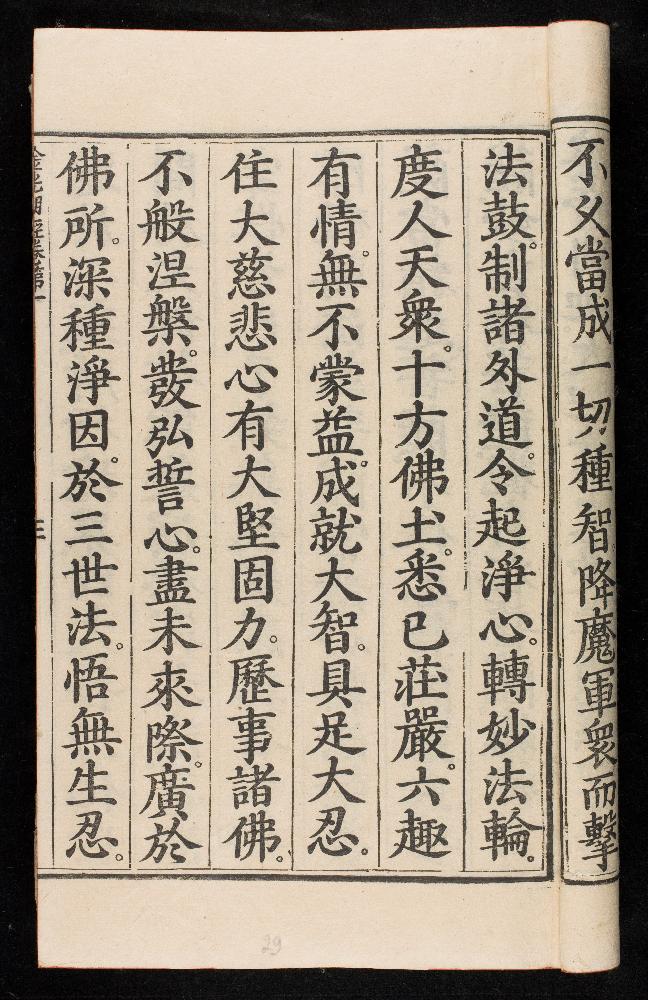 不久當成一切種智降魔軍衆而擊
法鼓。制諸外道。令起淨心。轉妙法輪。
度人天衆。十方佛土。悉已莊嚴。六趣
有情。無不蒙益。成就大智。具足大忍。
住大慈悲心有大堅固力。歷事諸佛。
不般涅槃。發弘誓心。盡未來際。廣於
佛所。深種淨因。於三世法。悟無生忍。
金光明經卷第一
三
29